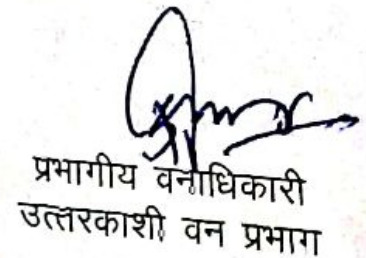 प्रभागीय वनाधिकारी
उत्तरकाशी वन प्रभाग